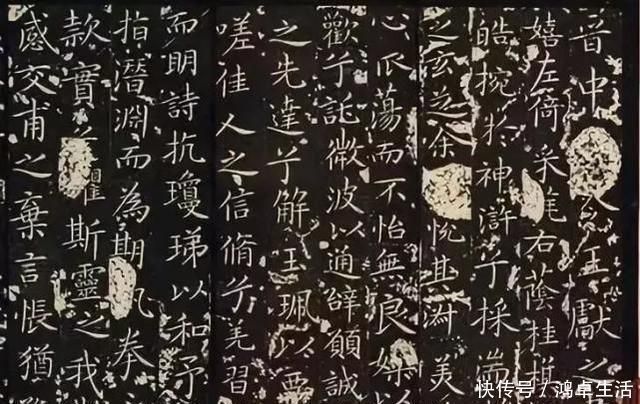 晉中令王獻之
嬉左倚采旄右蔭桂旗
皓捥於神滸兮採湍
之玄芝余悅其淑美
心振蕩而不怡無良媒以
歡兮託微波以通辭願誠
之先達兮解玉珮以要
嗟佳人之信脩兮羌習
而明詩抗瓊珶以和予
指潛淵而為期執拳
款實懼斯靈之我
感交甫之棄言悵猶
快传号／鸿卓生活